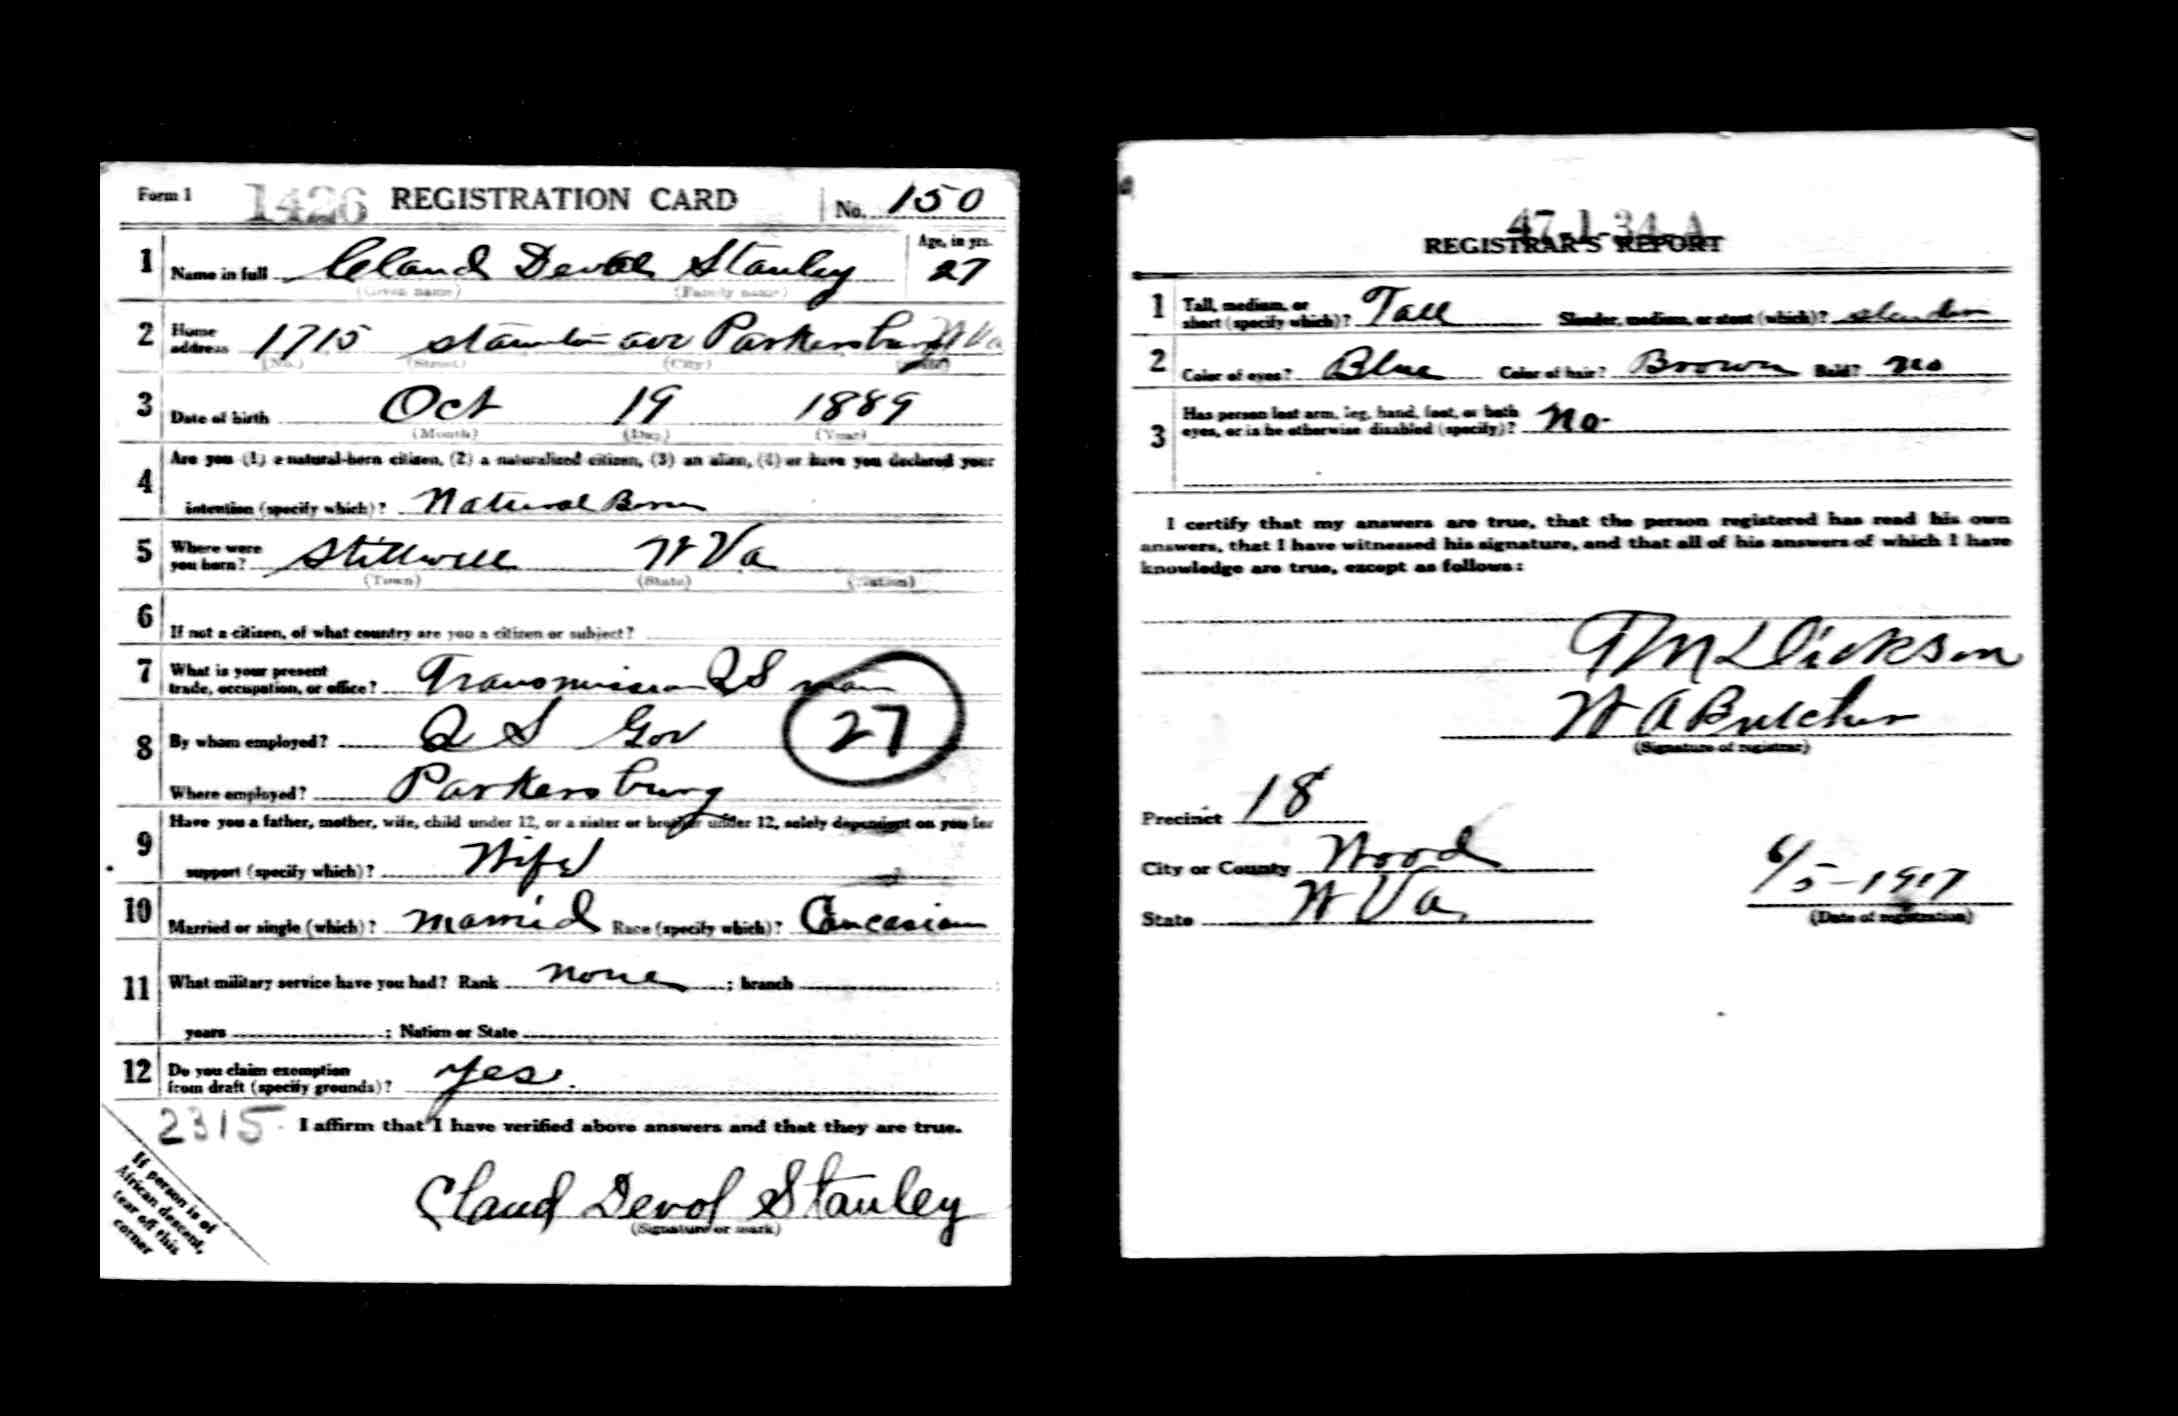 Form 1 1426 REGISTRATION CARD No. 150
1 Name in full Claud Devol Stanley Age, in yrs. 27
(Given name) (Family name)
2 Home address 1715 Staunton ave Parkersburg W Va
(No.) (Street) (City) (State)
3 Date of birth Oct 19 1889
(Month) (Day) (Year)
4 Are you (1) a natural-born citizen, (2) a naturalized citizen, (3) an alien, (4) or have you declared your
intention (specify which)? Natural Born
5 Where were you born? Stillwell W Va
(Town) (State) (Nation)
6 If not a citizen, of what country are you a citizen or subject?
7 What is your present
trade, occupation, or office? Transmission man
8 By whom employed? Gov 27
Where employed? Parkersburg
9 Have you a father, mother, wife, child under 12, or a sister or brother under 12, solely dependent on you for
support (specify which)? Wife
10 Married or single (which)? Married Race (specify which)? Caucasian
11 What military service have you had? Rank none ; branch
years ; Nation or State
12 Do you claim exemption
from draft (specify grounds)? yes.
2315 I affirm that I have verified above answers and that they are true.
Claud Devol Stanley
(Signature or mark)
If person is of
African descent,
tear off this
corner
47-1-34-A
REGISTRAR'S REPORT
1 Tall, medium, or
short (specify which)? Tall Slender, medium, or stout (which)? slender
2 Color of eyes? Blue Color of hair? Brown Bald? no
3 Has person lost arm, leg, hand, foot, or both
eyes, or is he otherwise disabled (specify)? no.
I certify that my answers are true, that the person registered has read his own
answers, that I have witnessed his signature, and that all of his answers of which I have
knowledge are true, except as follows:
Dickson
W A Butcher
(Signature of registrar)
Precinct 18
City or County Wood
State W Va
6/5-1917
(Date of registration)